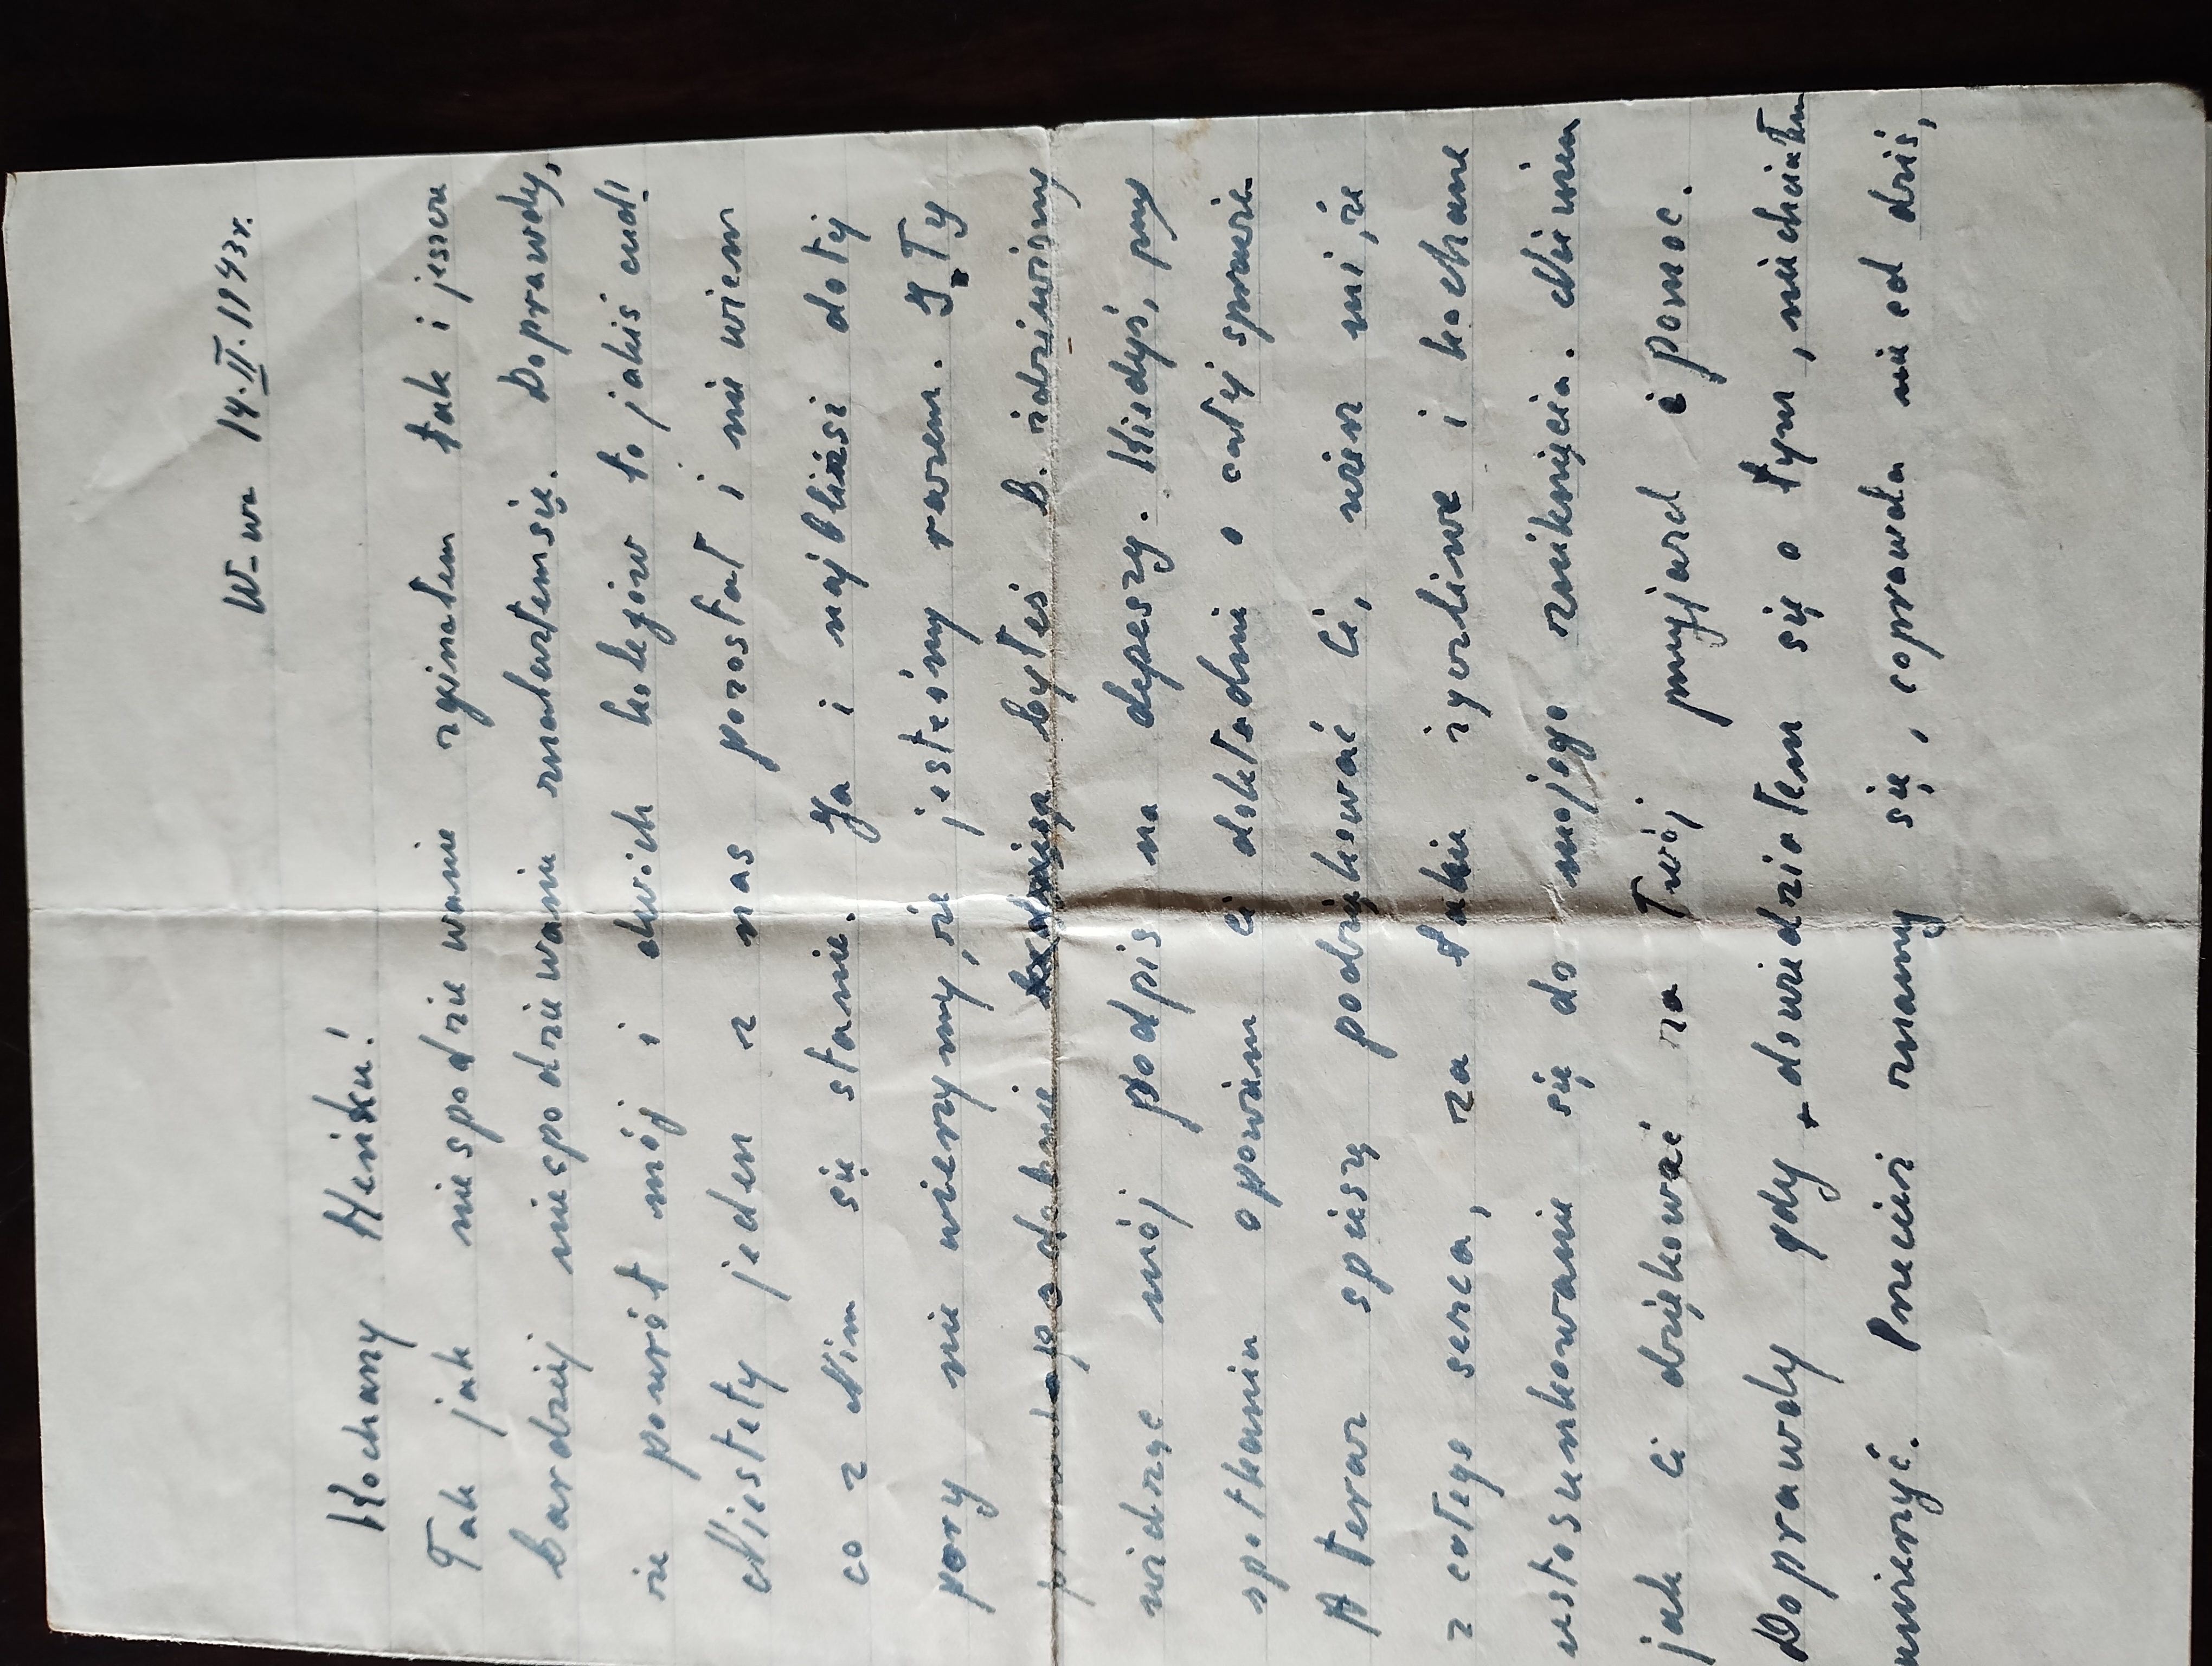 W-wa 14.II.1943r.
Kochany Heńku!
Tak jak niespodziewanie zginąłem tak i jeszcze
bardziej niespodziewanie znalazłem się. Doprawdy,
że powrót mój i dwóch kolegów to jakiś cud!
Niestety jeden z nas pozostał i nie wiem
co z Nim się stanie. Ja i najbliżsi do tej
pory nie wierzymy, że jesteśmy razem. I Ty
prawdopodobnie byłeś b. zdziwiony
widząc mój podpis na depeszy. Kiedyś, przy
spotkaniu opowiem ci dokładnie o całej sprawie.
A teraz spieszę podziękować Ci, wierz mi, że
z całego serca, za takie życzliwe i kochane
ustosunkowanie się do mojego zniknięcia. Nie wiem
jak Ci dziękować za Twój przyjazd i pomoc.
Doprawdy gdy dowiedziałem się o tym, nie chciałem
uwierzyć. Przecież znamy się, coprawda nie od dziś,